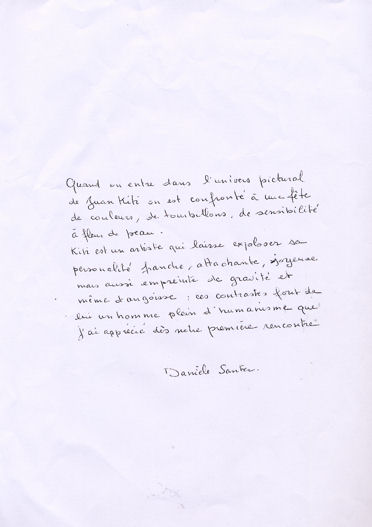 Quand on entre dans l'univers pictural
de Juan Kiti on est confronté à une fête
de couleurs, de tourbillons, de sensibilité
à fleur de peau.
Kiti est un artiste qui laisse exploser sa
personalité franche, attachante, joyeuse
mais aussi empreinte de gravité et
même d'angoisse : ces contrastes font de
lui un homme plein d'humanisme que
j'ai apprécié dès notre première rencontre
Danièle